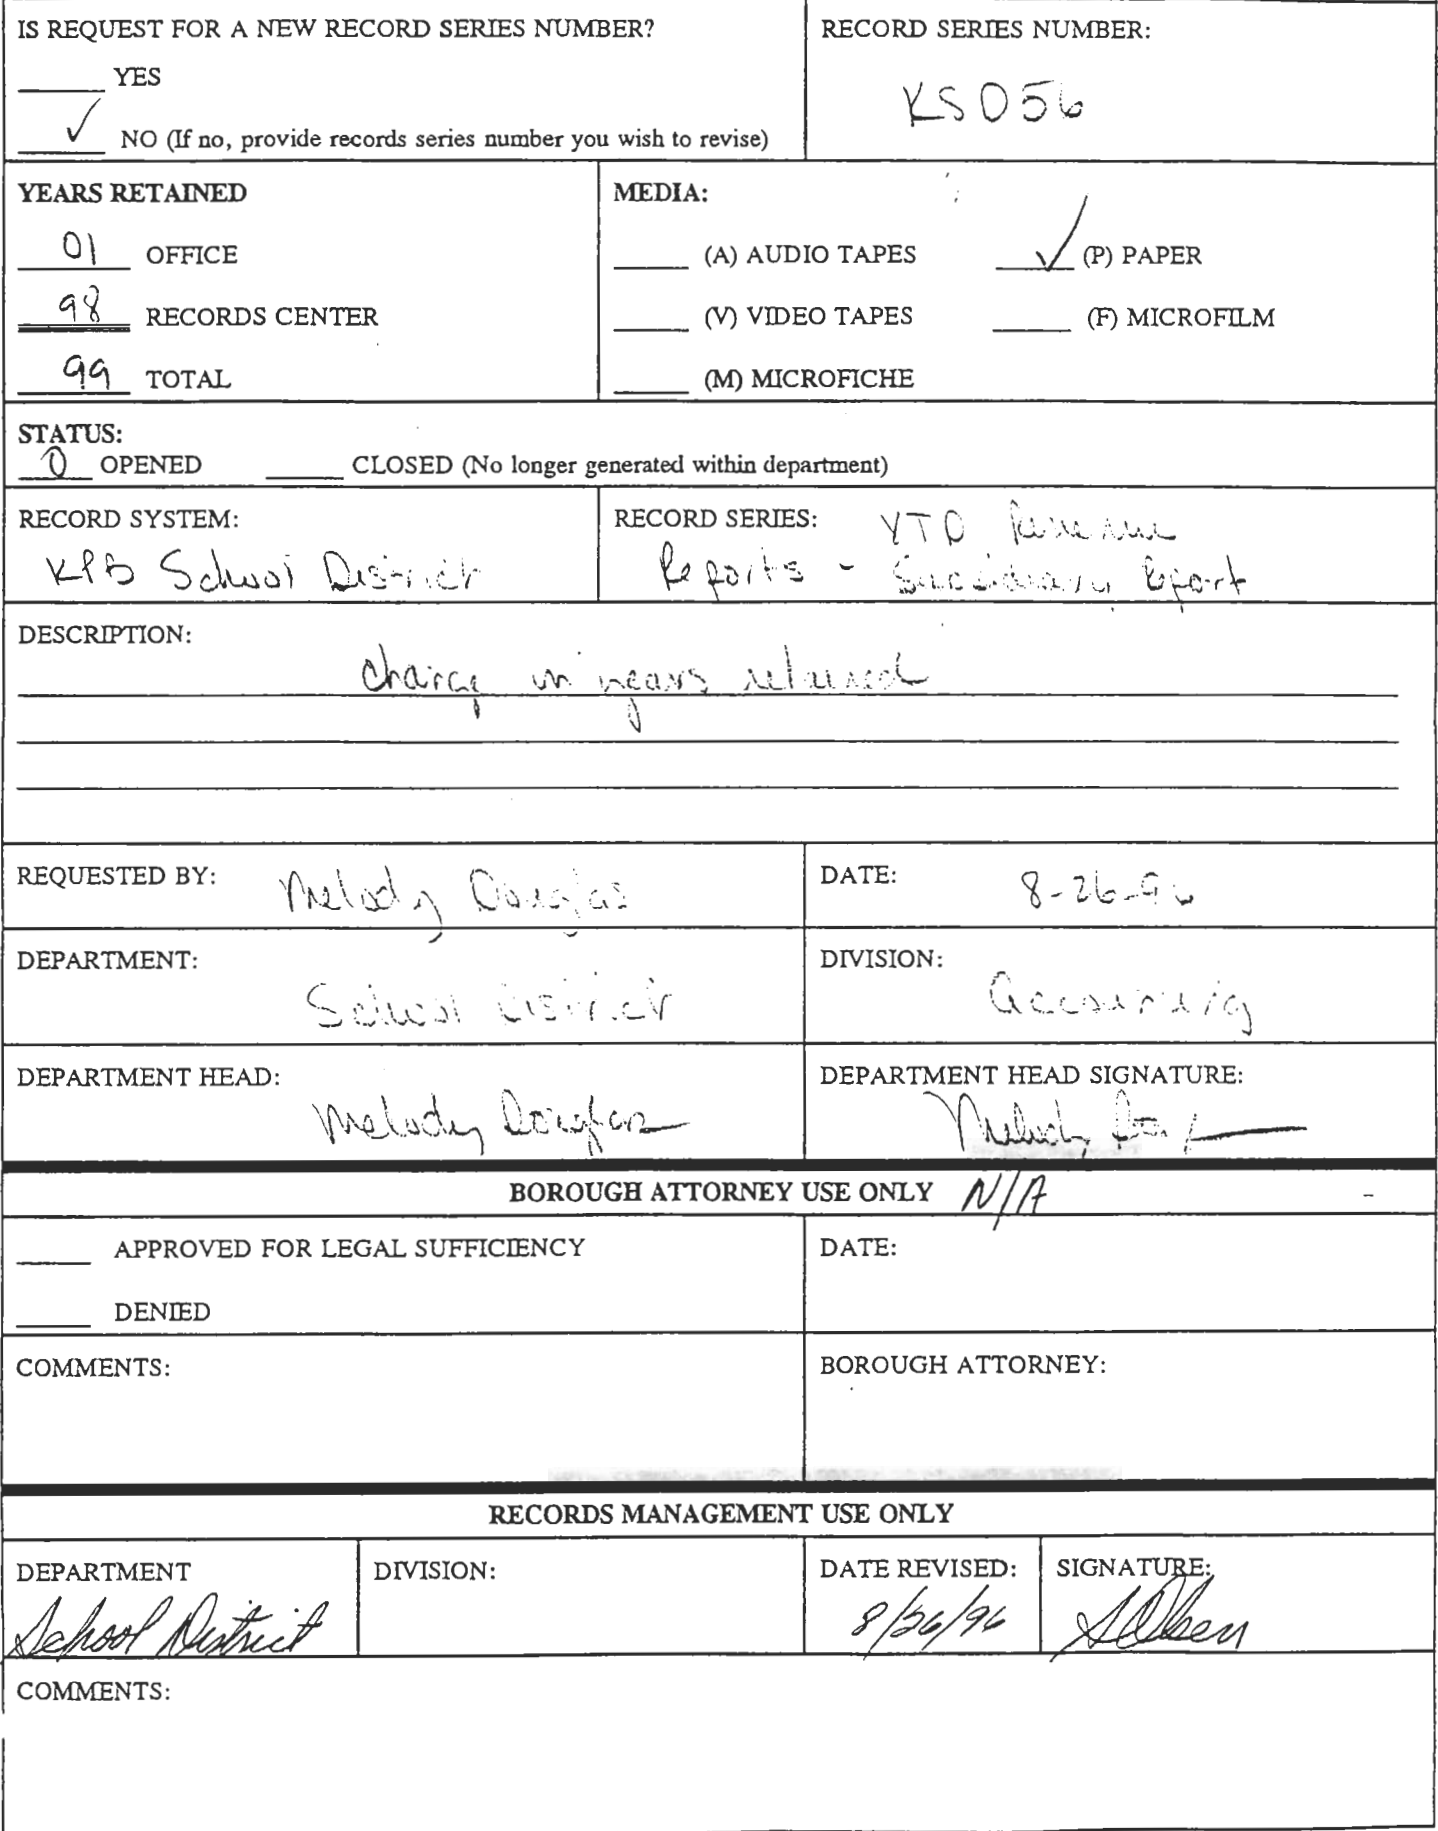 IS REQUEST FOR A NEW RECORD SERIES NUMBER?
YES
✓ NO (If no, provide records series number you wish to revise)
RECORD SERIES NUMBER:
KSD56
YEARS RETAINED
01 OFFICE
98 RECORDS CENTER
99 TOTAL
MEDIA:
(A) AUDIO TAPES ✓ (P) PAPER
(V) VIDEO TAPES (F) MICROFILM
(M) MICROFICHE
STATUS:
O OPENED CLOSED (No longer generated within department)
RECORD SYSTEM:
KPB School District
RECORD SERIES: YTD Revenue
Reports - Subsidiary Report
DESCRIPTION:
change in years retained
REQUESTED BY: Melody Douglas
DATE: 8-26-96
DEPARTMENT:
School District
DIVISION:
Accounting
DEPARTMENT HEAD:
Melody Douglas
DEPARTMENT HEAD SIGNATURE:
Melody Douglas
BOROUGH ATTORNEY USE ONLY N/A
APPROVED FOR LEGAL SUFFICIENCY
DENIED
DATE:
COMMENTS:
BOROUGH ATTORNEY:
RECORDS MANAGEMENT USE ONLY
DEPARTMENT
School District
DIVISION:
DATE REVISED:
8/26/96
SIGNATURE:
SOlsen
COMMENTS: